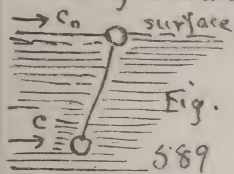 → Cₒ surface
Fig.
→ C
589